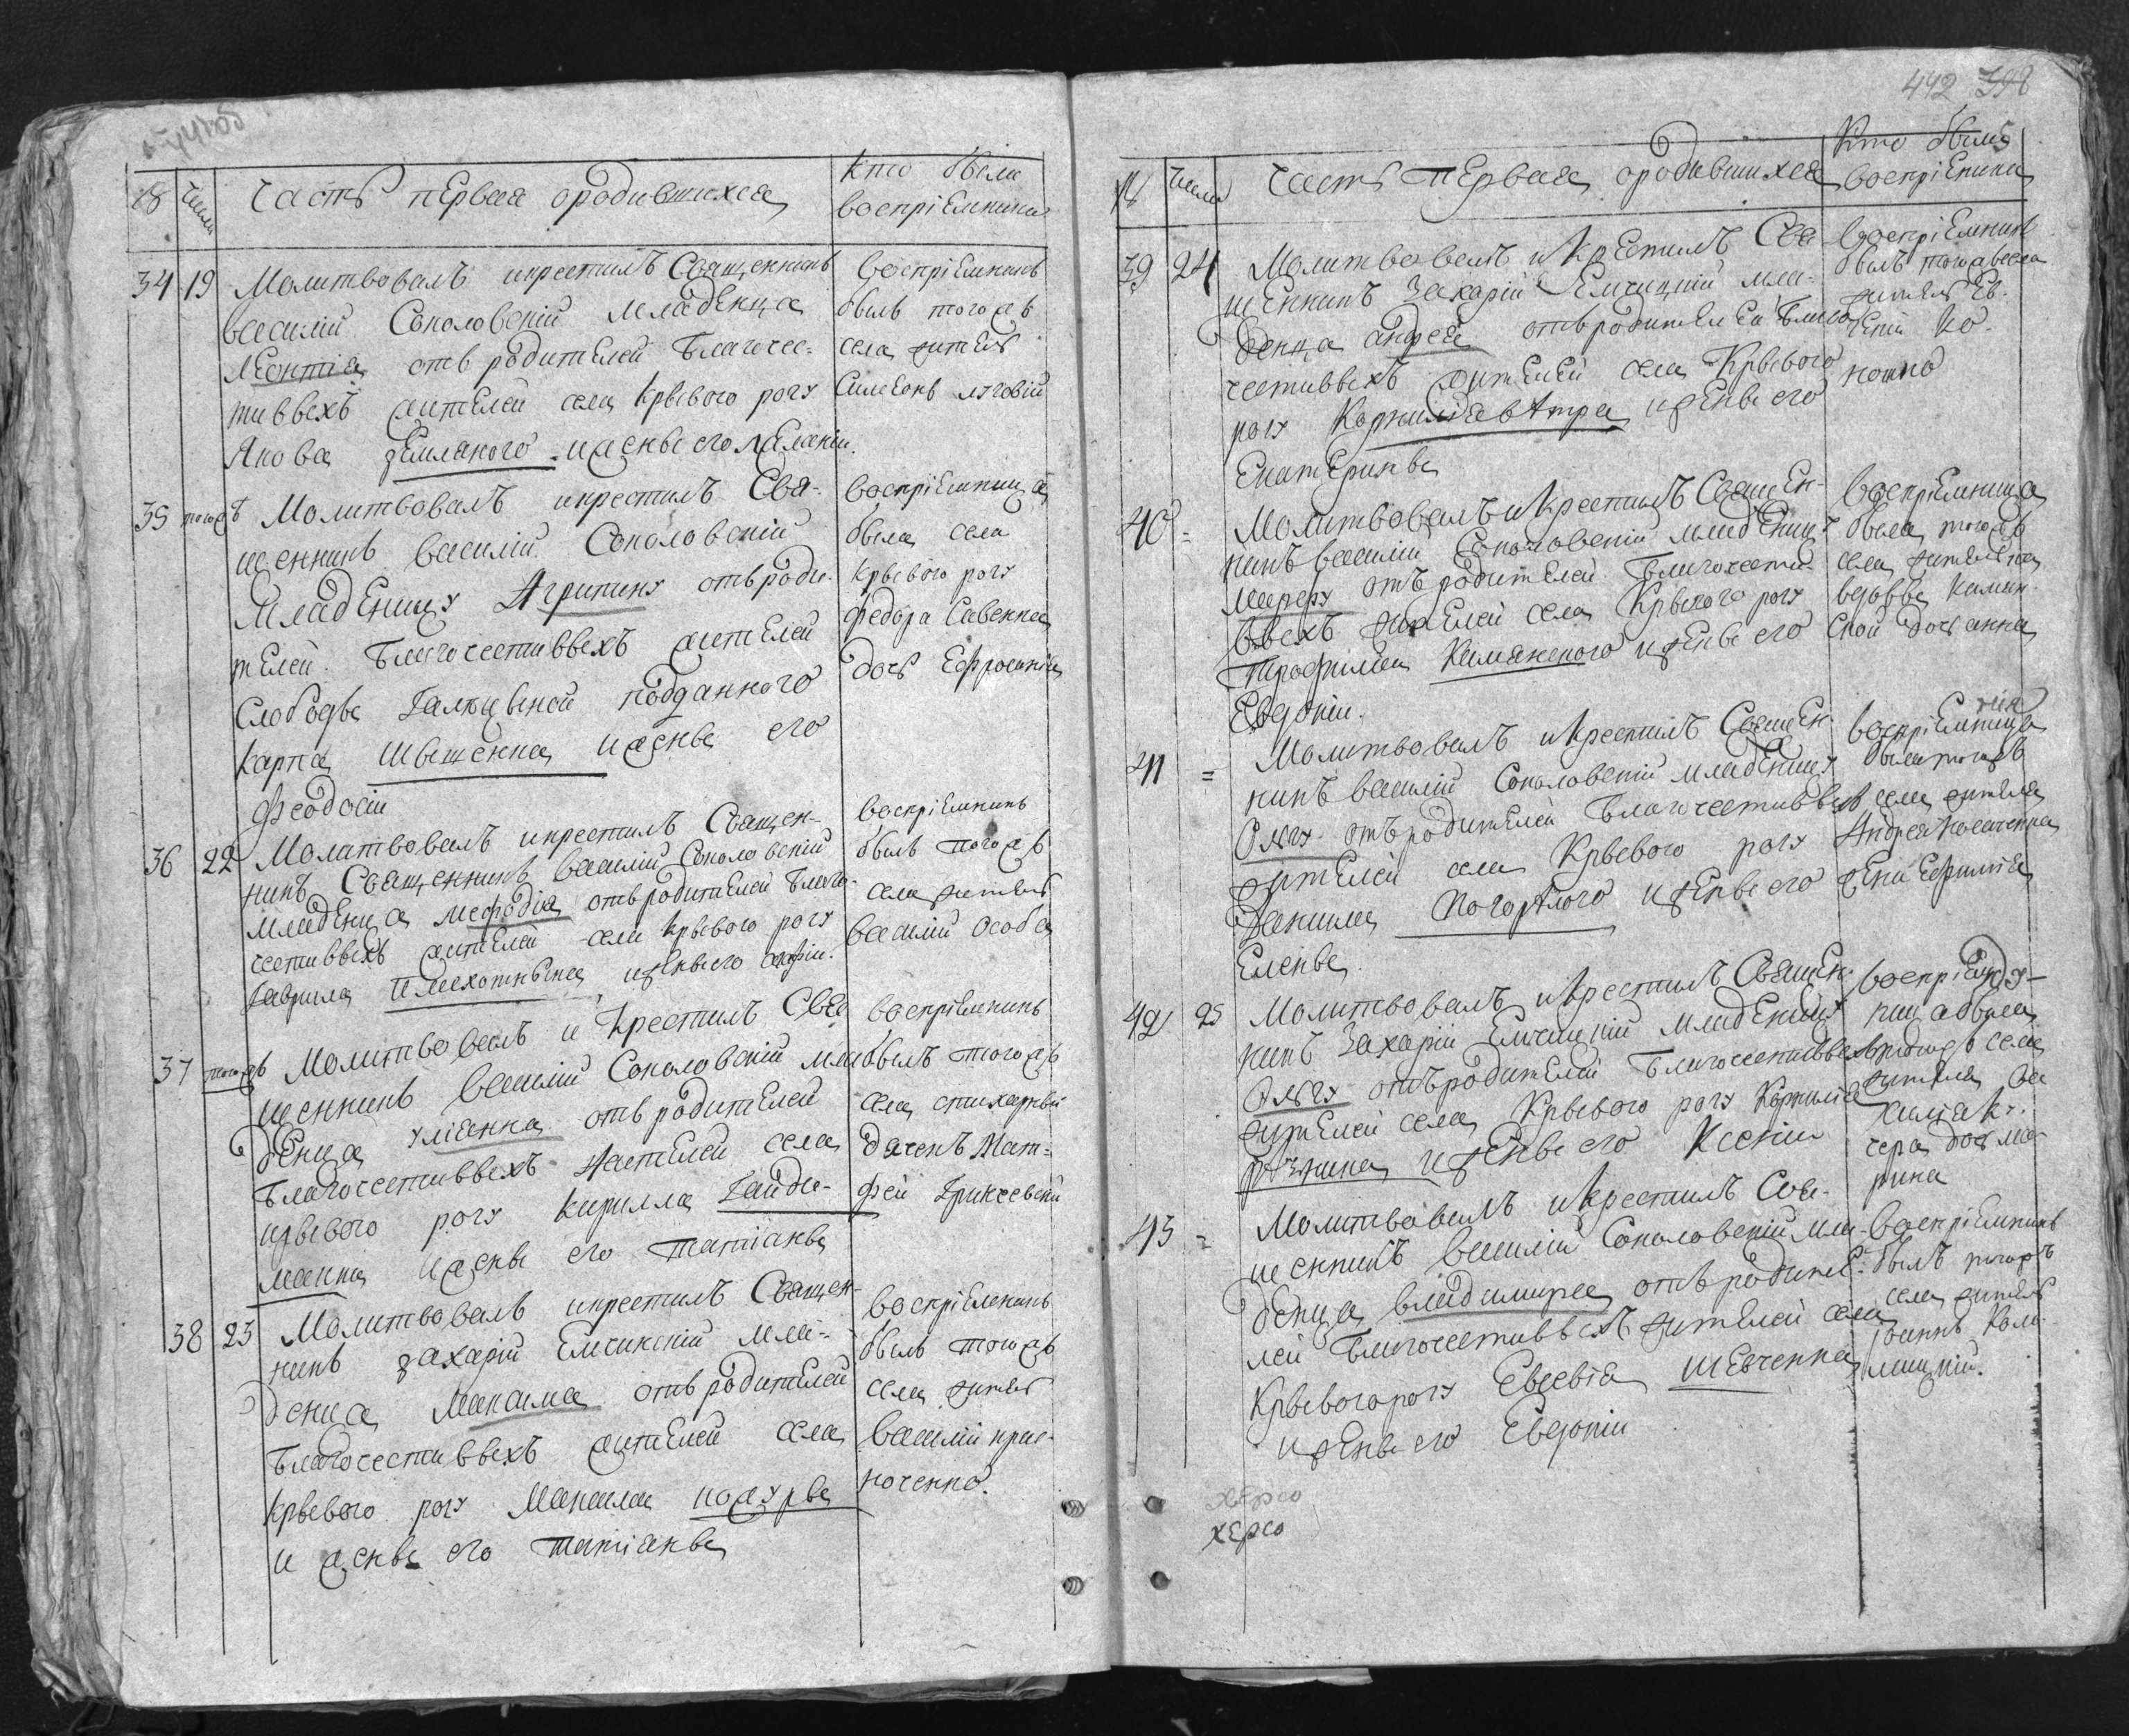 № Числа Часть первая ородившихся Кто были
воспріемники
34 19 Молитвовалъ икрестилъ Священникъ
василій Соколовскій младенца
Леонтіа отъ родителей Благочес=
тиввыхъ жителей села Крывого рогу
Якова Земляного ижены его меланіи.
воспріемникъ
былъ тогожъ
села житель
Симеонъ луговій
35 тогожъ Молитвовалъ икрестилъ Свя-
щенникъ василій Соколовскій
Младеницу Агрипину отъроди-
телей Благочестиввыхъ жителей
Слободы Галицыной подданного
Карпа Швыденка ижены его
Феодосіи
воспріемница
была села
Крывого рогу
федора Савенка
дочь Ефросинія
36 22 Молитвовалъ икрестилъ Священ-
никъ Священникъ василій Соколовскій
младенца мефодіа отъродителей Благо-
честиввыхъ жителей села Крывого рогу
Гаврила ижены его
воспріемникъ
былъ тогожъ
села житель
василій Особа
37 тогожъ Молитвовалъ и Крестилъ Свя
щенникъ василій Соколовскій мла
денца уліанна отъ родителей
Благочестиввыхъ жителей села
крывого рогу Кирилла Гайда-
макы ижены его татіанны
воспріемникъ
былъ тогожъ
села стихарный
дяченъ Мат=
фей
38 23 Молитвовалъ икрестилъ Священ-
никъ захарій мла=
денца Максима отъ родителей
Благочестиввыхъ жителей села
Крывого рогу Максима кожуры
и жены его татіанны
воспріемникъ
былъ тогожъ
села житель
василій крас-
ноченко.
442 398
№ Числа Часть первая ородившихся Кто былъ
воспріемники
39 24 Молитвовалъ и Крестилъ Свя-
щенникъ Захарій мла-
денца андрея отъродителей Благо
честиввыхъ жителей села Крывого
рогу Корниліа вѣтра ижены его
Екатерины
воспріемникъ
былъ тогожъ села
житель
40 = Молитвовалъ и Крестилъ Священ-
никъ василій Соколовскій младеницу
Марфу отъ родителей Благочести-
ввыхъ жителей села Крывого рогу
Трофима Камянского ижены его
Евдокіи.
воспріемница
была тогожъ
села жителька
вдовы Камян-
ской дочь анна
41 = Молитвовалъ и Крестилъ Священ-
никъ василій Соколовскій младеницу
Олгу отъродителей Благочестиввыхъ
жителей села Крывого рогу
Данила Погорѣлого ижены его
Елены.
воспріемница
была тогожъ
села жителя
Андрея Косаченка
жена Ефимія
42 25 Молитвовалъ и Крестилъ Священ-
никъ Захарій младеницу
Олгу отъродителей Благочестиввыхъ
жителей села Крывого рогу Корниліа
ижены его Ксеніи
воспріем-
ница была
села
жителя
дочь ма-
рина
43 = Молитвовалъ и Крестилъ Свя-
щенникъ василій Соколовскій мла-
денца владимира отъродите-
лей Благочестиввыхъ жителей села
Крывогорогу Евсевіа шевченка
ижены его Евдокіи
воспріемникъ
былъ тогожъ
села житель
іоаннъ Кало-
мицкій.
херсо
херсо